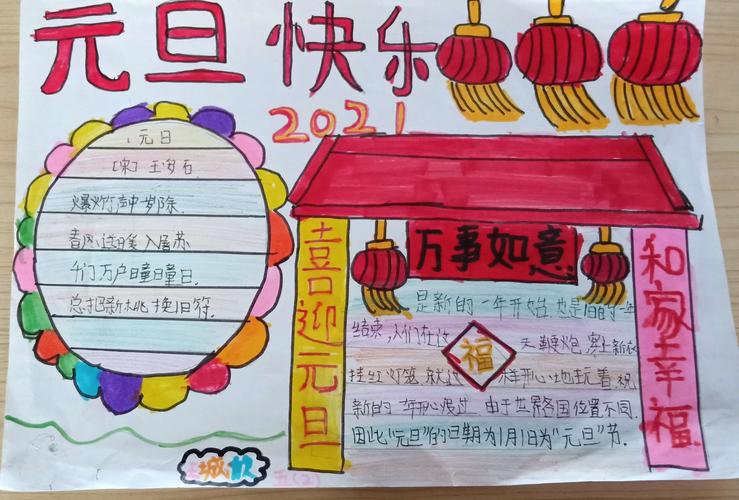 元旦快乐
2021
元日
[宋]王安石
爆竹声中一岁除.
春风送暖入屠苏
千门万户瞳瞳日.
总把新桃换旧符.
喜迎元旦
万事如意
和家幸福
福
是新的一年开始,也是旧的一年
结束,人们在这 天鞭炮,穿上新衣
挂红灯笼 就这 样开心地玩着祝
新的一年开心度过 由于世界各国位置不同.
因此"元旦"的日期为1月1日为"元旦"节.
城杰
五(2)